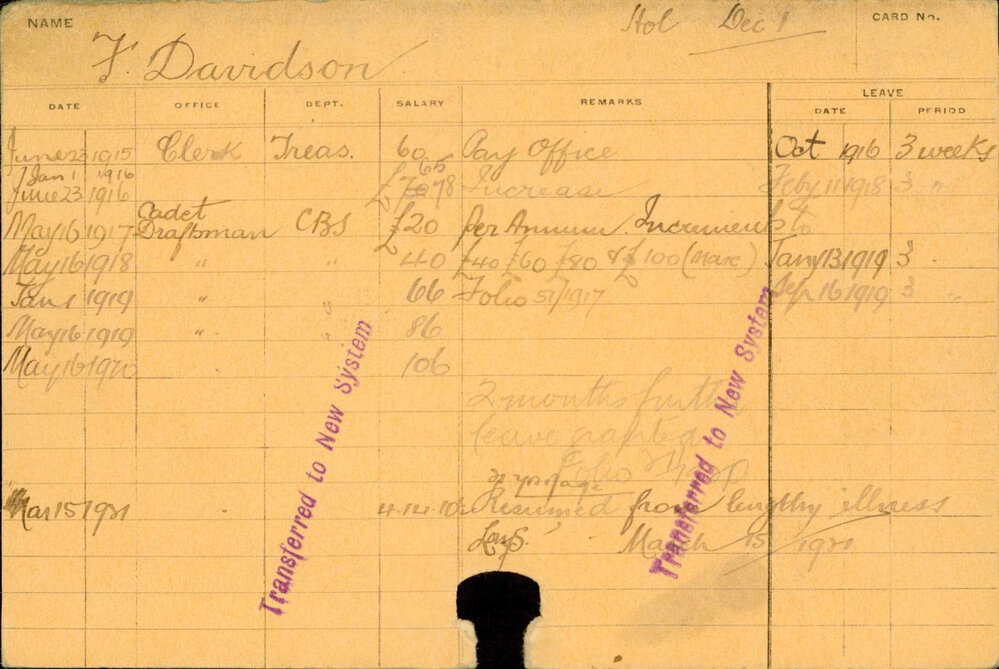 NAME Hol Dec 1 CARD No.
F. Davidson
DATE OFFICE DEPT. SALARY REMARKS LEAVE
DATE PERIOD
June 23 1915 Clerk Treas. 60 Pay Office Oct 1916 3 weeks
Jan 1 1916 65
June 23 1916 £70 78 Increase Feby 11 1918 3 "
May 16 1917 Cadet Draftsman CBS £20 per Annum Increments to
May 16 1918 " " 40 £40 £60 £80 & £100 (marc) Jany 13 1919 3 "
Jan 1 1919 " " 66 Folio 51/1917 Sep 16 1919 3 "
May 16 1919 " " 86
May 16 1920 106
2 months further
leave granted
Folio
Mar 15 1921 4.14.10 Resumed from lengthy illness
March 15/1921
Transferred to New System
Transferred to New System